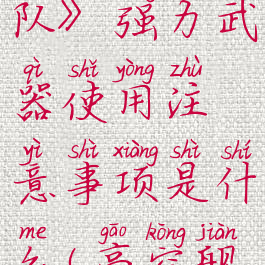 队》强力武
qì shǐ yòng zhù
器使用注
yì shì xiàng shì shí
意事项是什
me gāo kōng jiàn
么（高空舰